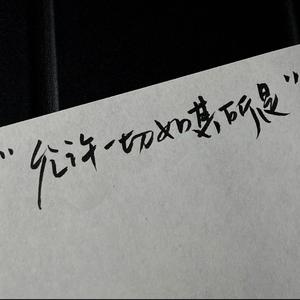 “允许一切如其所是”